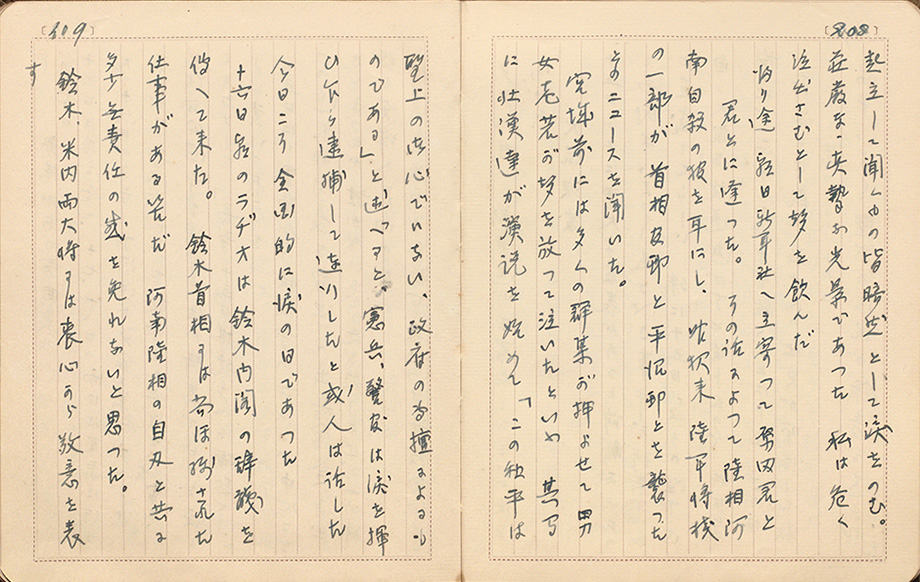 起立して聞くもの皆暗然として涙をのむ。
荘厳な真摯な光景であつた 私は危く
泣出さむとして声を飲んだ
帰り途 朝日新聞社へ立寄つて 君と
君とに逢つた。その話によつて陸相阿
南自殺の報を耳にし、昨夜来 陸軍将校
の一部が首相官邸と平沼邸とを襲つた
とのニュースを聞いた。
宮城前には多くの群集が押よせて 男
女老若が声を放つて泣いたといふ 其間
に壮漢達が演説を始めて「この和平は
609
聖上の御心でない、政府の専擅によるも
のである」と述べると、憲兵、警官は涙を揮
ひながら逮捕して連行したと或人は話した
今日こそ全国的に涙の日であつた
十六日朝のラヂオは鈴木内閣の辞職を
伝へて来た。鈴木首相には尚ほ残された
仕事がある筈だ 阿南陸相の自刃と共に
多少無責任の感を免れないと思つた。
鈴木、米内両大将には衷心から敬意を表
す